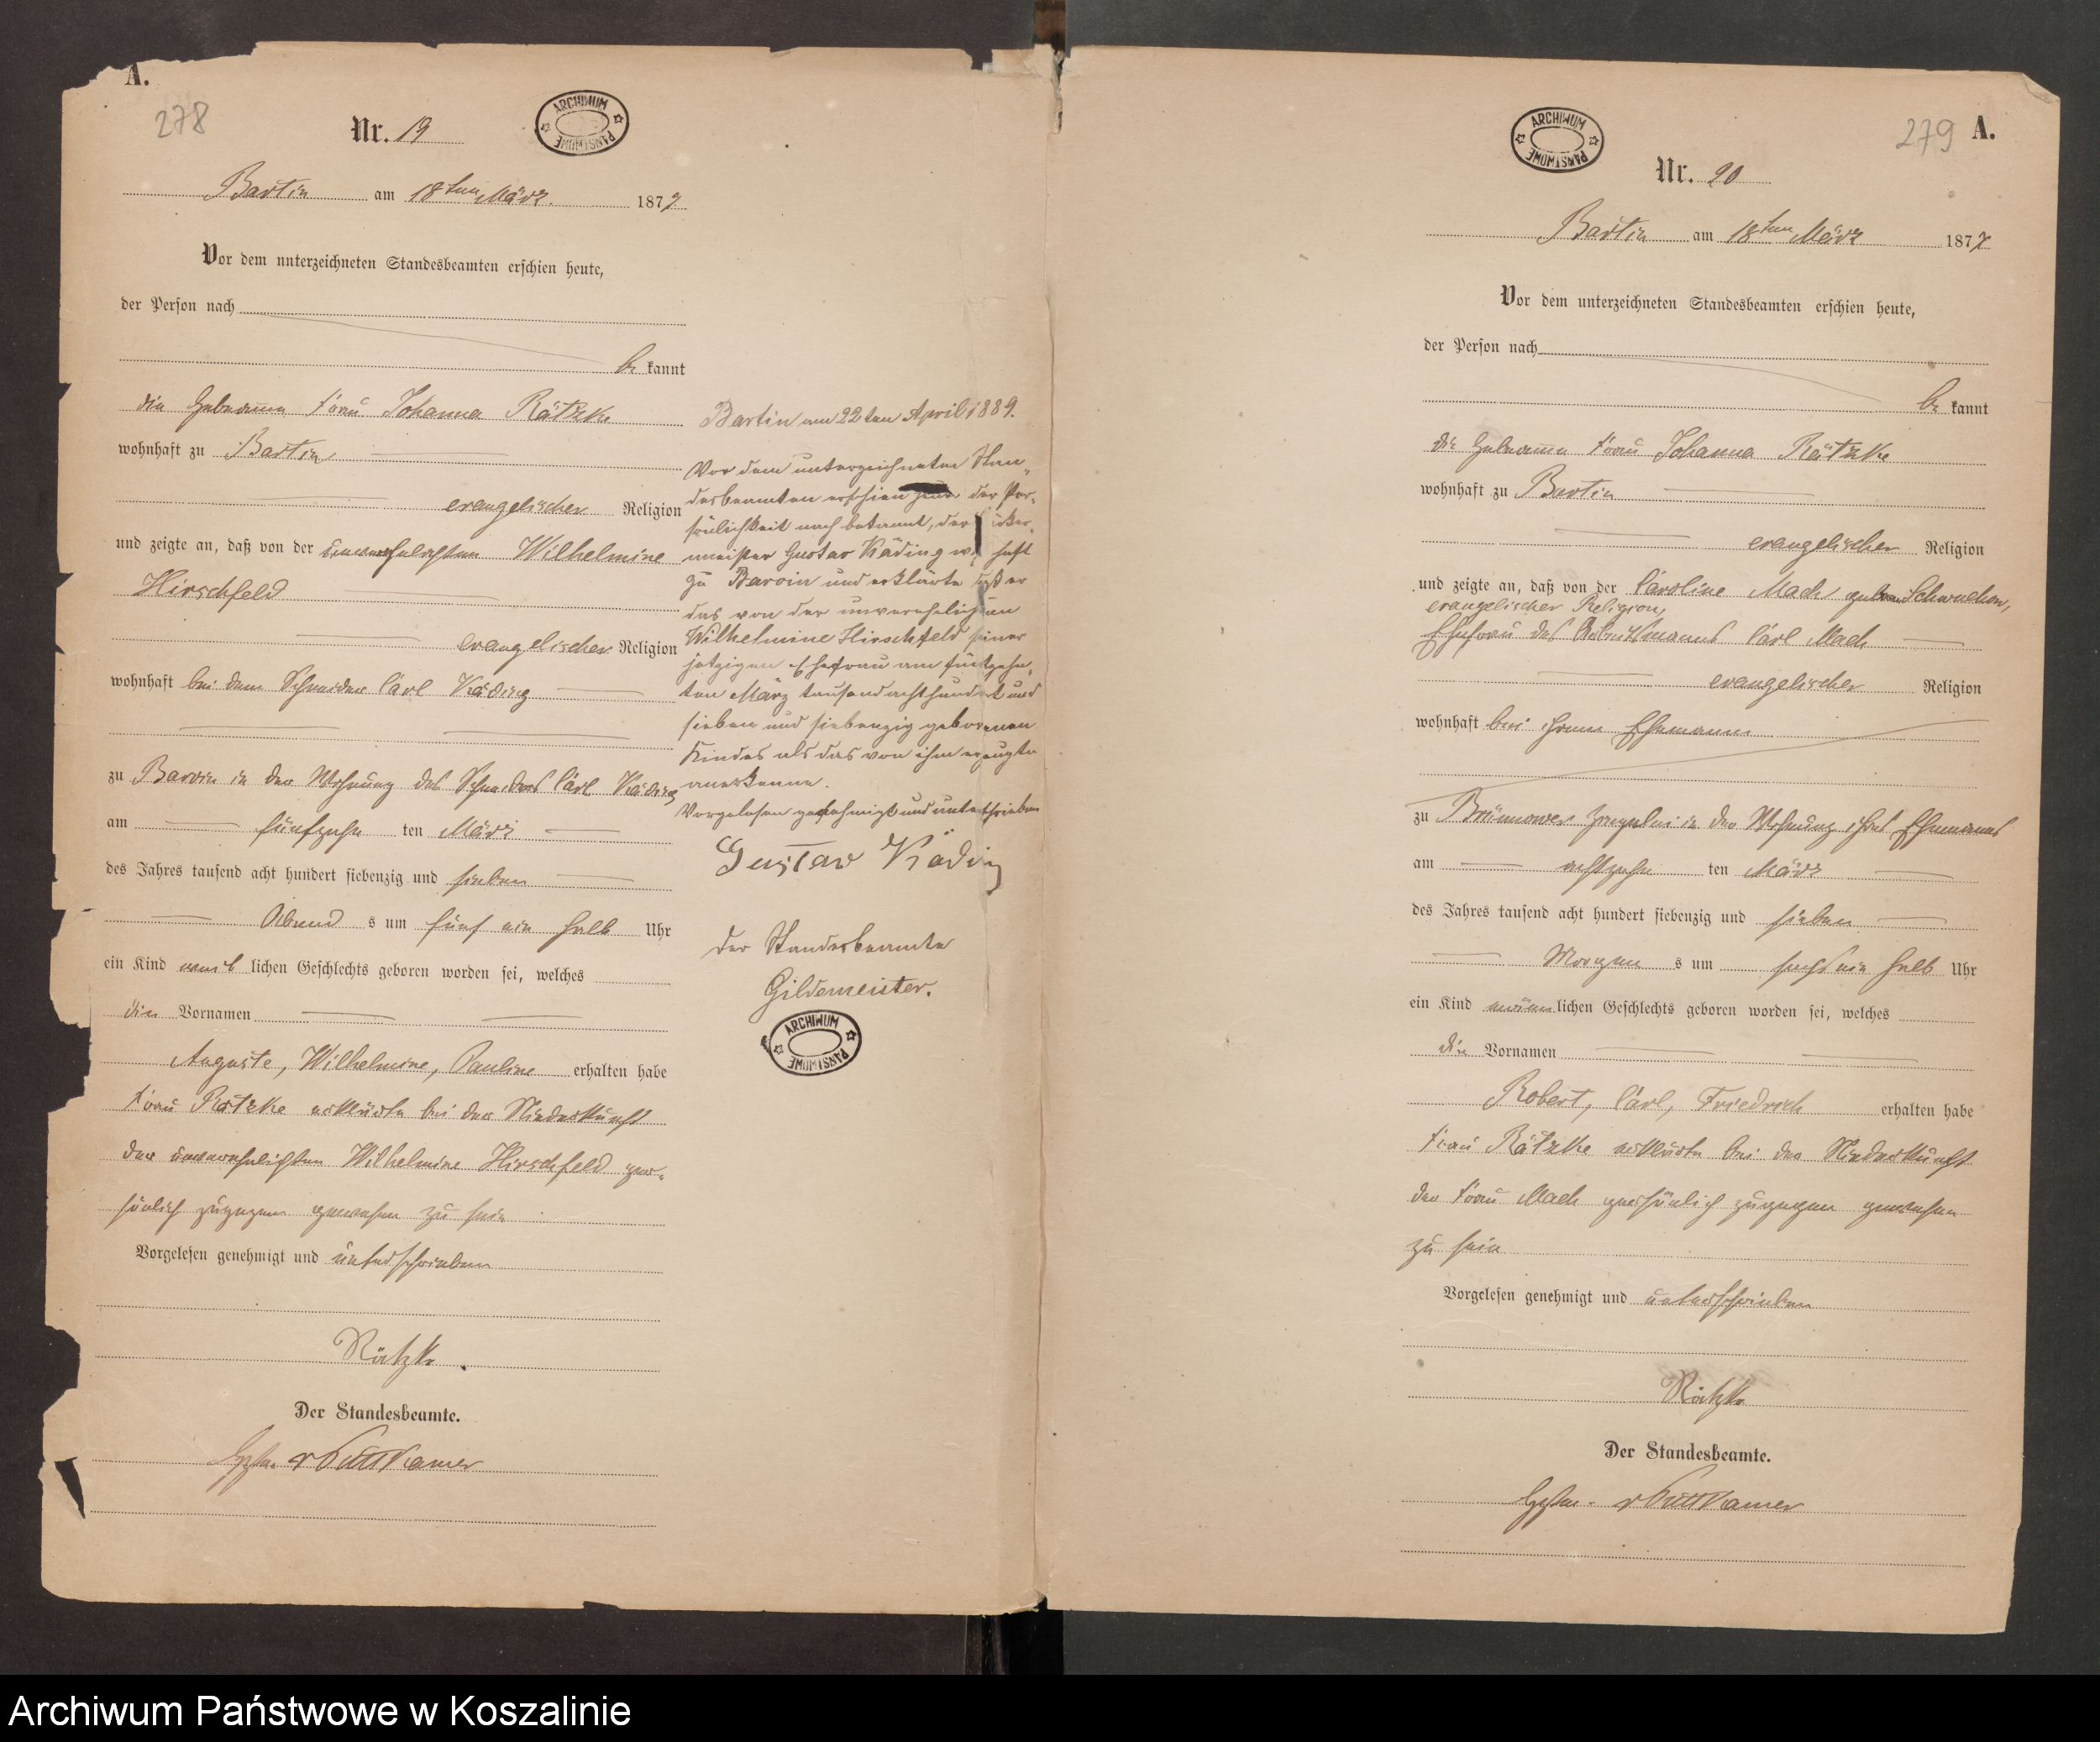 A.
278
Nr. 19
ARCHIWUM PAŃSTWOWE
Bartin am 18ten März 1877
Vor dem unterzeichneten Standesbeamten erschien heute,
der Person nach
be kannt
die Hebamme Frau Johanna Rätzke
wohnhaft zu Bartin
evangelischer Religion
und zeigte an, daß von der unverehelichten Wilhelmine
Hirschfeld
evangelischer Religion
wohnhaft bei dem Schneider Carl Käding
zu Barvin in der Wohnung des Schneiders Carl Käding
am fünfzehn ten März
des Jahres tausend acht hundert siebenzig und sieben
Abend s um fünf ein halb Uhr
ein Kind weib lichen Geschlechts geboren worden sei, welches
die Vornamen
Auguste, Wilhelmine, Pauline erhalten habe
Frau Rätzke erklärte bei der Niederkunft
der unverehelichten Wilhelmine Hirschfeld per-
sönlich zugegen gewesen zu sein
Vorgelesen genehmigt und unterschrieben
Rätzke
Der Standesbeamte.
v Puttkamer
Bartin am 22ten April 1889.
Vor dem unterzeichneten Stan-
desbeamten erschien der Per-
sönlichkeit nach bekannt, der
meister Gustav Käding
zu Barvin und erklärte daß er
das von der unverehelichten
Wilhelmine Hirschfeld seiner
jetzigen Ehefrau am fünfzehn-
ten März tausend achthundert und
sieben und siebenzig geborenen
Kindes als das von ihm erzeugte
anerkenne.
Vorgelesen genehmigt und unterschrieben
Gustav Käding
Der Standesbeamte
Gildemeister.
ARCHIWUM PAŃSTWOWE
ARCHIWUM PAŃSTWOWE
279 A.
Nr. 20
Bartin am 18ten März 1877
Vor dem unterzeichneten Standesbeamten erschien heute,
der Person nach
be kannt
die Hebamme Frau Johanna Rätzke
wohnhaft zu Bartin
evangelischer Religion
und zeigte an, daß von der Caroline Mach geboren Schwuchow,
evangelischer Religion,
Ehefrau des Arbeitsmanns Carl Mach
evangelischer Religion
wohnhaft bei ihrem Ehemann
zu Brünnower Ziegelei in der Wohnung ihres Ehemanns
am achtzehn ten März
des Jahres tausend acht hundert siebenzig und sieben
Morgen s um sechs ein halb Uhr
ein Kind männ lichen Geschlechts geboren worden sei, welches
die Vornamen
Robert, Carl, Friedrich erhalten habe
Frau Rätzke erklärte bei der Niederkunft
der Frau Mach persönlich zugegen gewesen
zu sein
Vorgelesen genehmigt und unterschrieben
Rätzke
Der Standesbeamte.
v Puttkamer
Archiwum Państwowe w Koszalinie